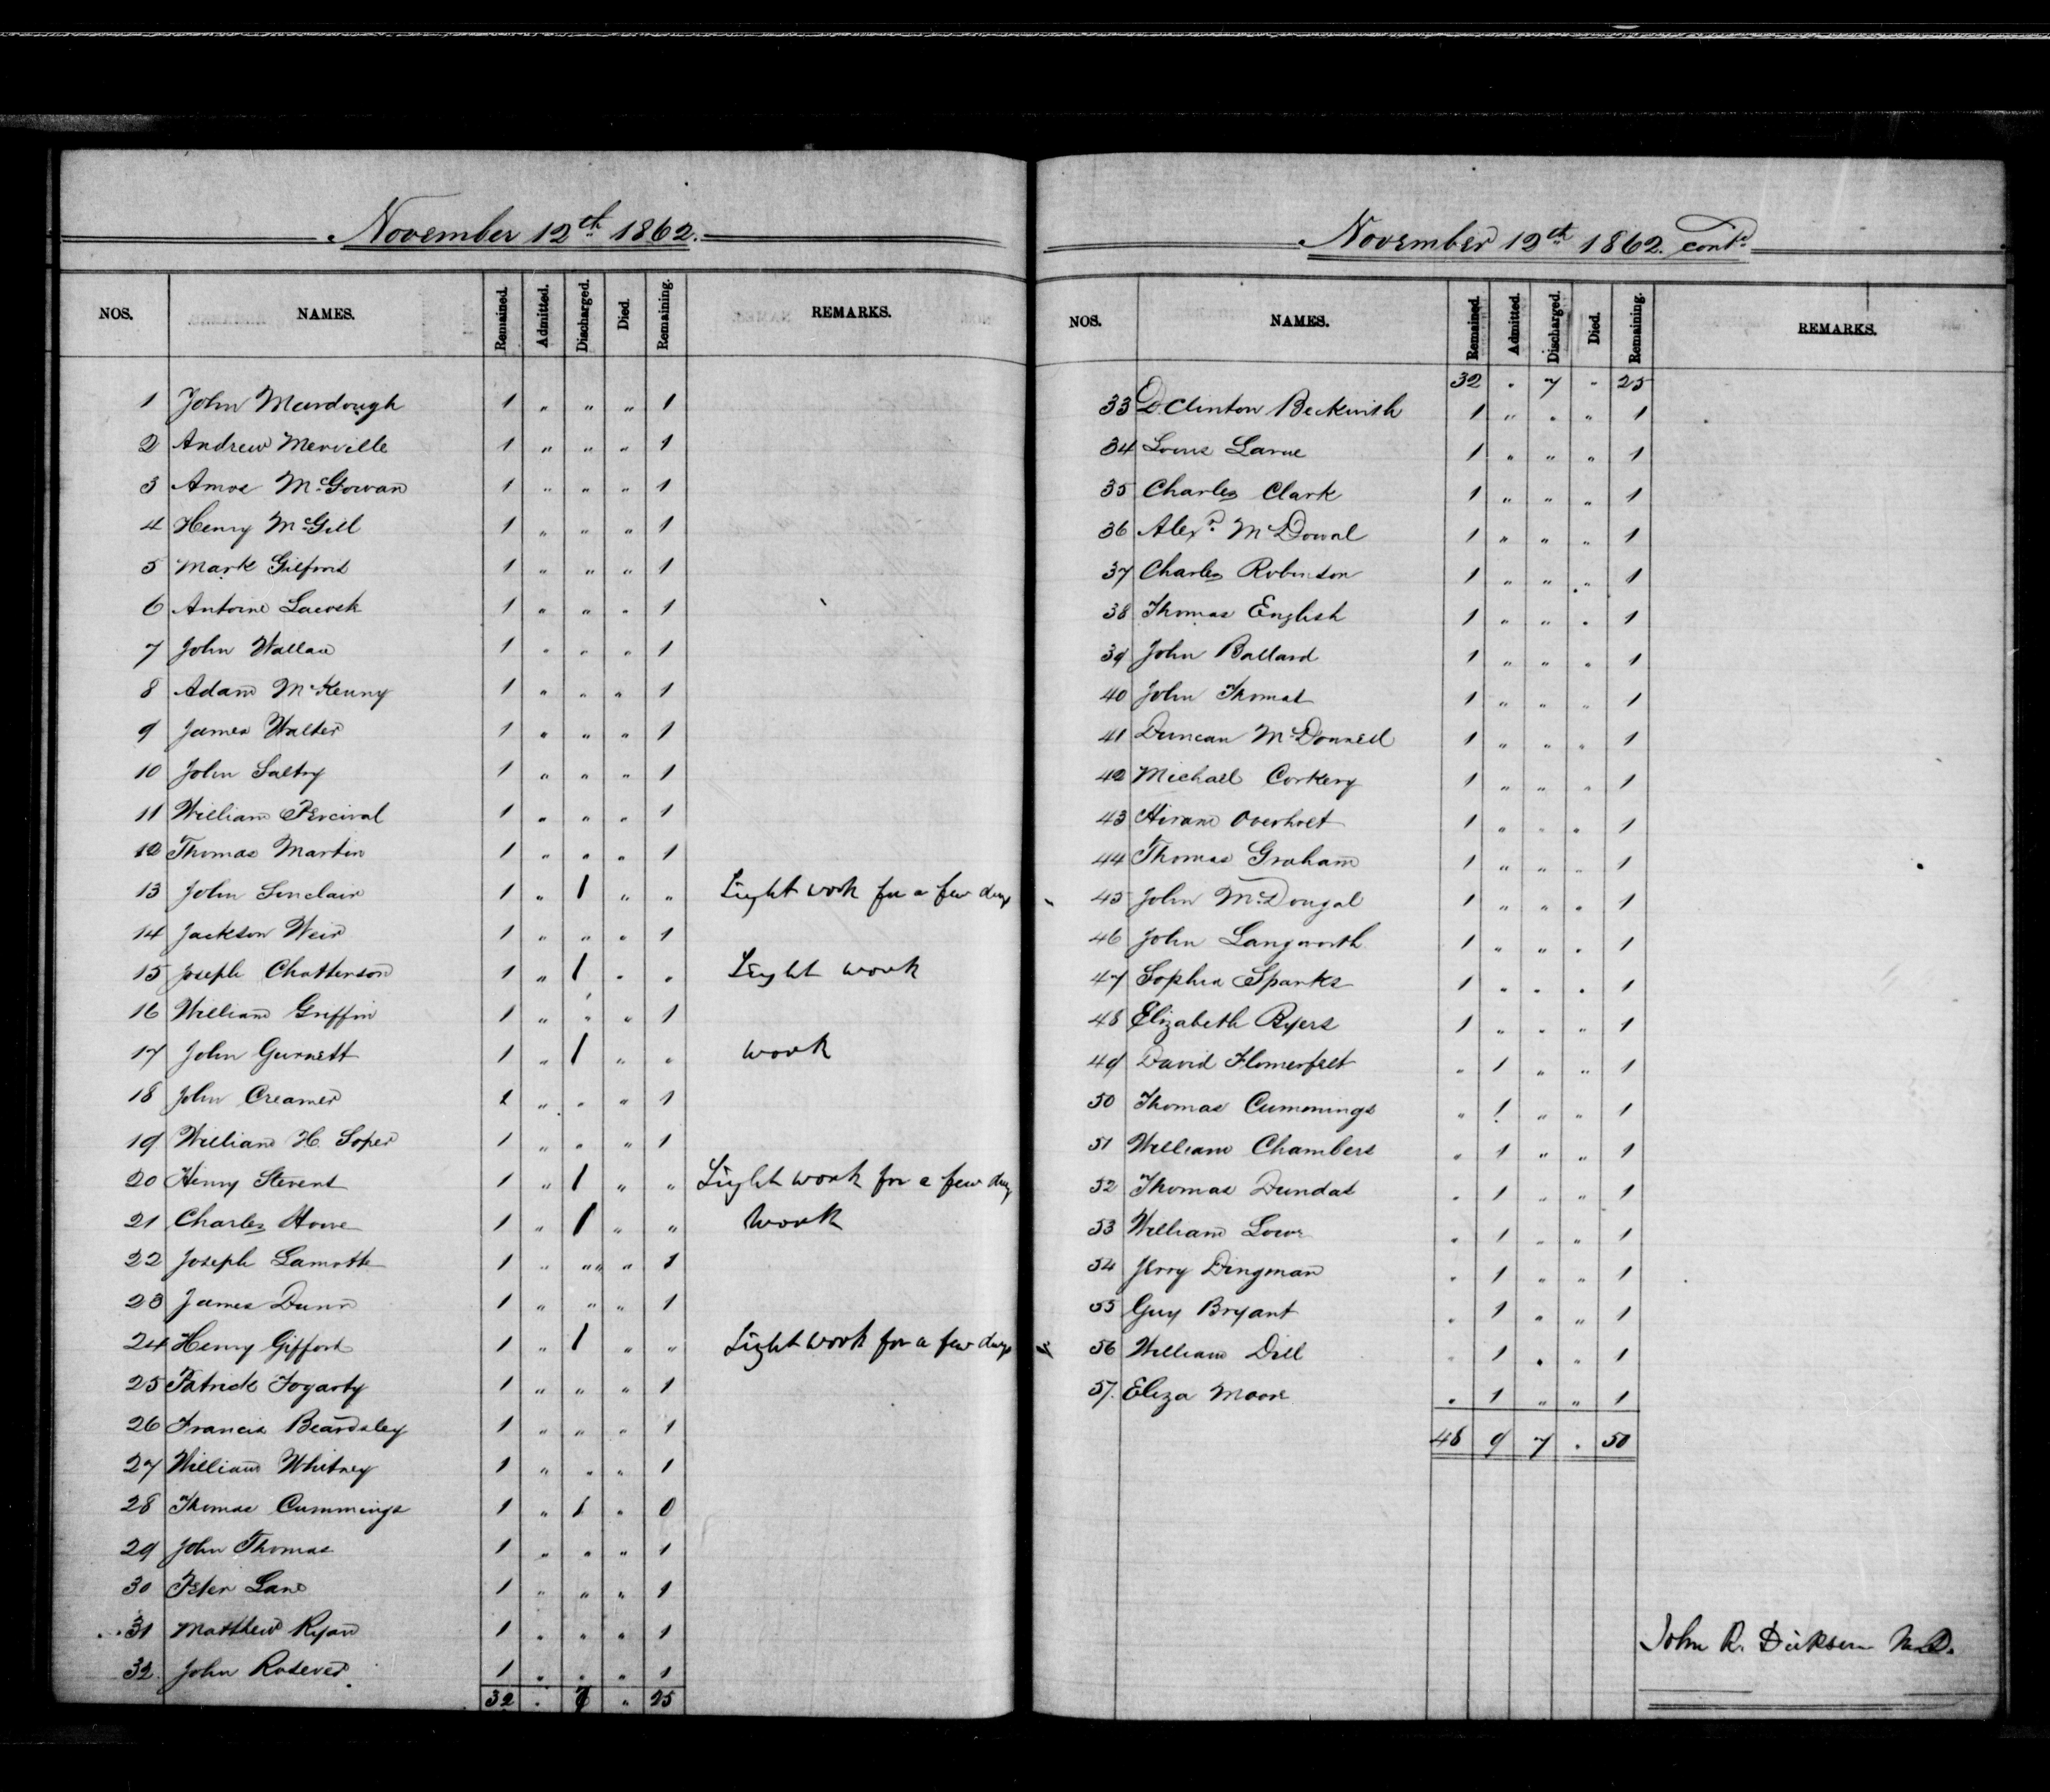 November 12th 1862.
NOS. NAMES. Remained. Admitted. Discharged. Died. Remaining. REMARKS.
1 John Murdough 1 " " " 1
2 Andrew Merville 1 " " " 1
3 Amos McGowan 1 " " " 1
4 Henry McGill 1 " " " 1
5 Mark Gilford 1 " " " 1
6 Antoine 1 " " " 1
7 John Wallace 1 " " " 1
8 Adam McKenny 1 " " " 1
9 James Walter 1 " " " 1
10 John Saltry 1 " " " 1
11 William Percival 1 " " " 1
12 Thomas Martin 1 " " " 1
13 John Sinclair 1 " 1 " " Light work for a few days
14 Jackson Weir 1 " " " 1
15 Joseph Chatterson 1 " 1 " " Light work
16 William Griffin 1 " " " 1
17 John Gurnett 1 " 1 " " work
18 John Creamer 1 " " " 1
19 William H. Soper 1 " " " 1
20 Henry Stevens 1 " 1 " " Light work for a few days
21 Charles Howe 1 " 1 " " Work
22 Joseph Lamotte 1 " " " 1
23 James Dunn 1 " " " 1
24 Henry Gifford 1 " 1 " " Light work for a few days
25 Patrick Fogarty 1 " " " 1
26 Francis Beardsley 1 " " " 1
27 William Whitney 1 " " " 1
28 Thomas Cummings 1 " 1 " 0
29 John Thomas 1 " " " 1
30 Peter Lane 1 " " " 1
31 Matthew Ryan 1 " " " 1
32 John Rosever 1 " " " 1
32 " 7 " 25
November 12th 1862. contd
NOS. NAMES. Remained. Admitted. Discharged. Died. Remaining. REMARKS.
32 " 7 " 25
33 D. Clinton Beckwith 1 " " " 1
34 Louis Larue 1 " " " 1
35 Charles Clark 1 " " " 1
36 Alexr McDowal 1 " " " 1
37 Charles Robinson 1 " " " 1
38 Thomas English 1 " " " 1
39 John Ballard 1 " " " 1
40 John Thomas 1 " " " 1
41 Duncan McDonnell 1 " " " 1
42 Michael Corkery 1 " " " 1
43 Hiram Overholt 1 " " " 1
44 Thomas Graham 1 " " " 1
45 John McDougal 1 " " " 1
46 John Langworth 1 " " " 1
47 Sophia Sparks 1 " " " 1
48 Elizabeth Byers 1 " " " 1
49 David Flomerfelt " 1 " " 1
50 Thomas Cummings " 1 " " 1
51 William Chambers " 1 " " 1
52 Thomas Dundas " 1 " " 1
53 William Lowe " 1 " " 1
54 Jerry Dingman " 1 " " 1
55 Guy Bryant " 1 " " 1
56 William Dill " 1 " " 1
57. Eliza Moore " 1 " " 1
48 9 7 " 50
John R. Dickson M.D.